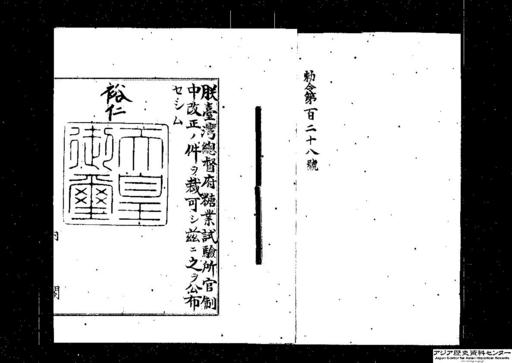 勅令第百二十八號
朕臺灣總督府糖業試驗所官制
中改正ノ件ヲ裁可シ茲ニ之ヲ公布
セシム
裕仁
天皇
御璽
内
閣
アジア歴史資料センター
Japan Center for Asian Historical Records